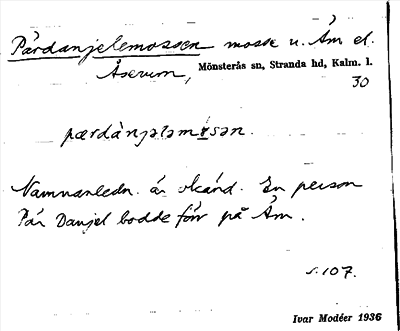 Pärdanjelemossen mosse u. Åm el.
Åserum, Mönsterås sn, Stranda hd, Kalm. l.
30
pærdànjələmɵsən.
Namnanledn. är okänd. En person
Pär Danjel bodde förr på Åm.
s. 107.
Ivar Modéer 1936